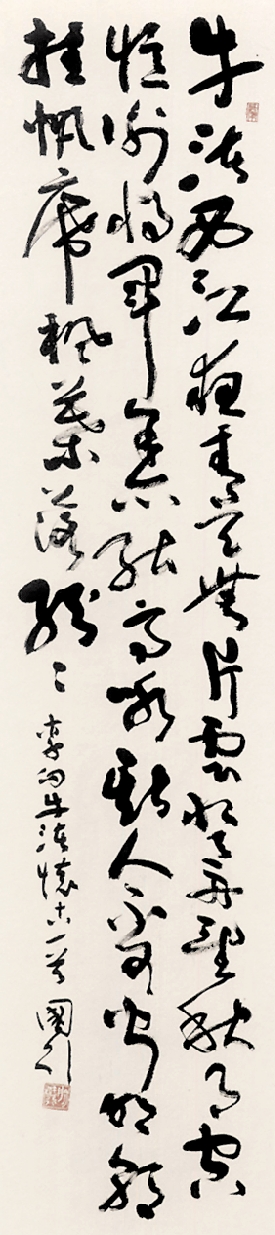 牛渚西江夜青天無片雲登舟望秋月空
憶謝將軍余亦能高詠斯人不可聞明朝
挂帆席楓葉落紛〻
李白牛渚懷古一首 國